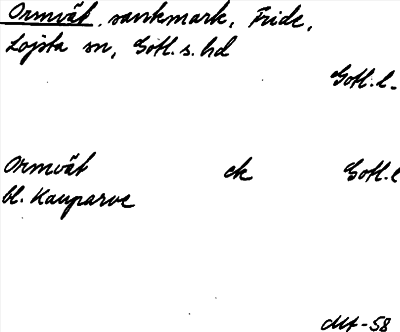 Ormvät, sankmark, Fride,
Lojsta sn, Gotl. s. hd
Gotl. l.
Ormvät ek Gotl. l
bl. Kauparve
-58